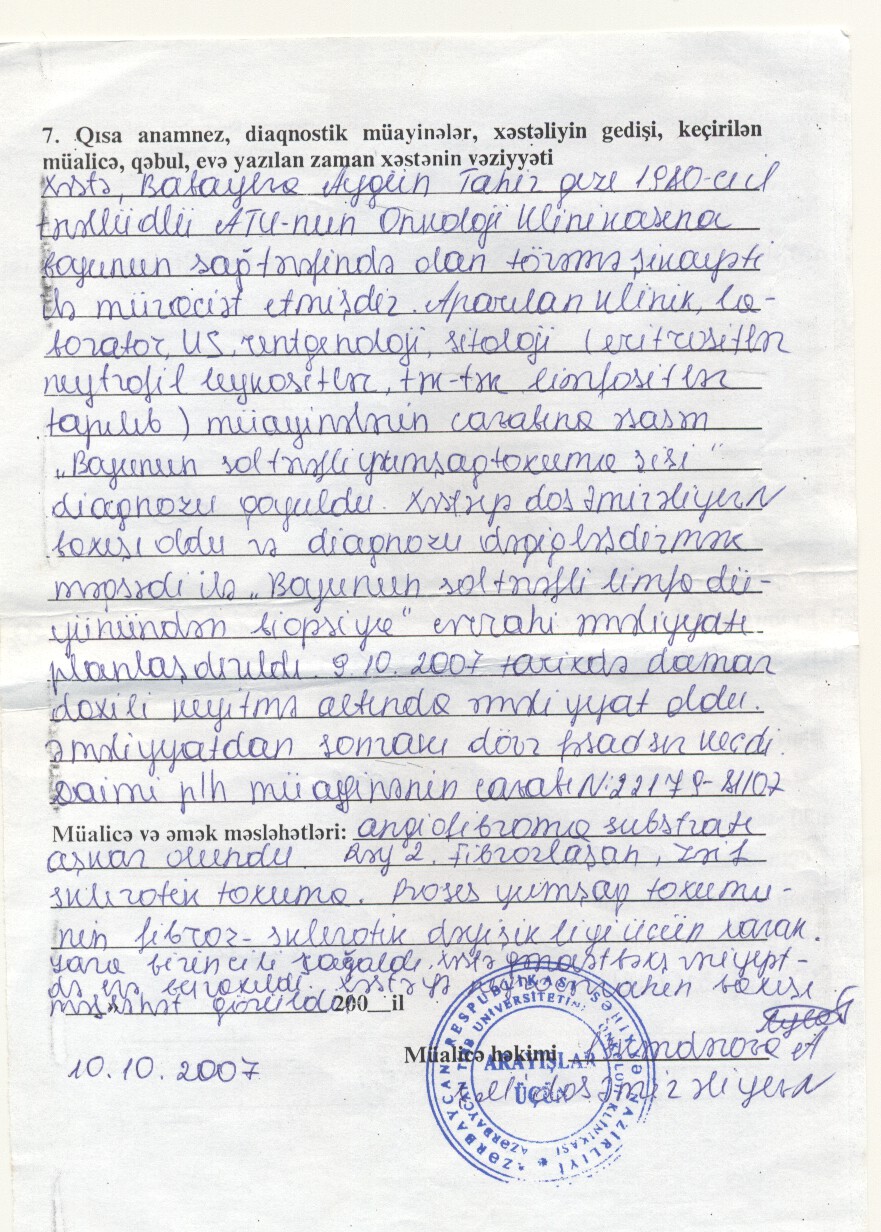 7. Qısa anamnez, diaqnostik müayinələr, xəstəliyin gedişi, keçirilən
müalicə, qəbul, evə yazılan zaman xəstənin vəziyyəti
Xəstə, Babayeva Aygün Tahir qızı 1980-ci il
təvəllüdlü ATU-nun Onkoloji klinikasına
boyunun sağ tərəfində olan törəmə şikayəti
ilə müraciət etmişdir. Aparılan klinik, la-
borator, US, rentgenoloji, sitoloji (eritrositlər
neytrofil leykositlər, tək-tək limfositlər
tapılıb) müayinələrin cavabına əsasən
„Boyunun sol tərəfli yumşaq toxuma şişi"
diagnozu qoyuldu. Xəstəyə dos Əmirəliyevin
baxışı oldu və diagnozu dəqiqləşdirmək
məqsədi ilə „Boyunun sol tərəfli limfa dü-
yünündən biopsiya" cərrahi əməliyyatı
planlaşdırıldı. 9.10.2007 tarixdə damar
daxili keyitmə altında əməliyyat oldu.
Əməliyyatdan sonrakı dövr fəsadsız keçdi.
Daimi p/h müayinənin cavabı N: 22179-81/07
Müalicə və əmək məsləhətləri: angiofibroma substratı
aşkar olundu. 2. Fibrozlaşan, zəif
sklerotik toxuma. Proses yumşaq toxuma-
nın fibroz-sklerotik dəyişikliyi üçün xarak.
Yara birincili sağaldı. Xəstə qənaətbəxş vəziyyət-
də evə buraxıldı. Xəstəyə baxışı
məsləhət görüldü. 200__il
Müalicə həkimi
10.10.2007
dos Əmirəliyevin
AZƏRBAYCAN RESPUBLİKASI SƏHİYYƏ NAZİRLİYİ
AZƏRBAYCAN TİBB UNİVERSİTETİNİN ONKOLOJİ KLİNİKASI
ARAYIŞLAR
ÜÇÜN